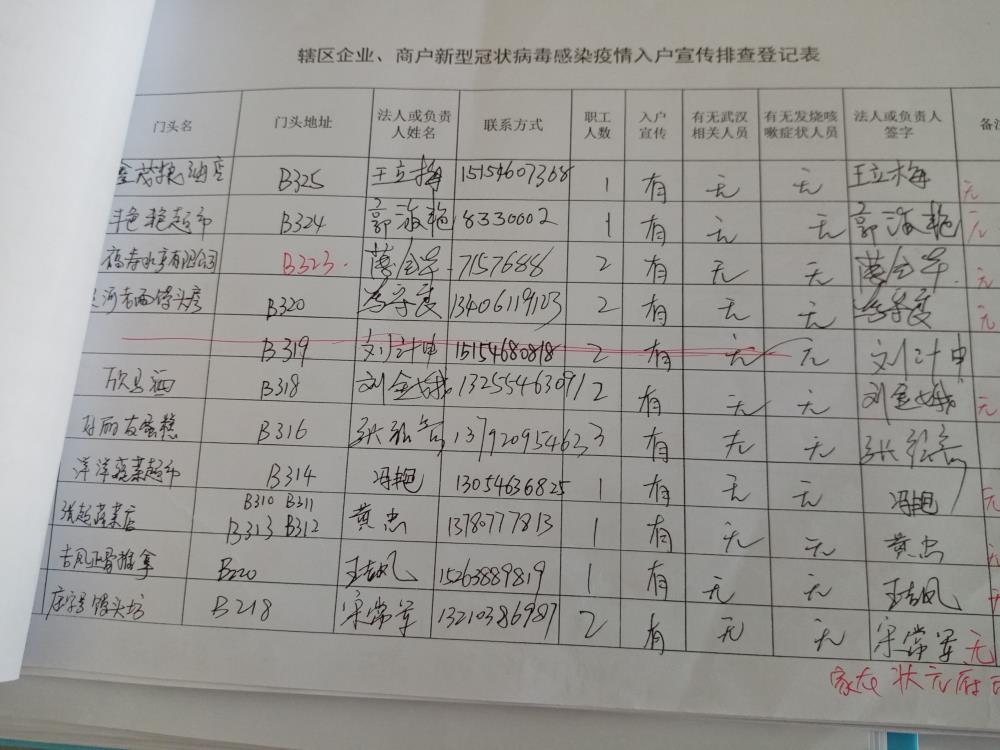 辖区企业、商户新型冠状病毒感染疫情入户宣传排查登记表
门头名 门头地址 法人或负责人姓名 联系方式 职工人数 入户宣传 有无武汉相关人员 有无发烧咳嗽症状人员 法人或负责人签字 备注
B325 王立梅 15154607368 1 有 无 无 王立梅 无
艳超市 B324 郭海艳 8330002 1 有 无 无 郭海艳 无
B323. 7157688 2 有 无 无 无
馒头房 B320 13406119123 2 有 无 无 无
B319 刘计申 15154680818 2 有 无 无 刘计申
B318 刘金娥 13255463091 2 有 无 无 刘金娥 无
好丽友蛋糕 B316 13792095462 3 有 无 无
洋洋蔬菜超市 B314 冯艳 13054636825 1 有 无 无 冯艳 无
蔬菜店 B310 B311 B313 B312 黄忠 13780777813 1 有 无 无 黄忠 无
吉凤正骨推拿 B220 王吉凤 15263889819 1 有 无 无 王吉凤 无
馒头坊 B218 宋常军 13210386987 2 有 无 无 宋常军 无
家在状元府